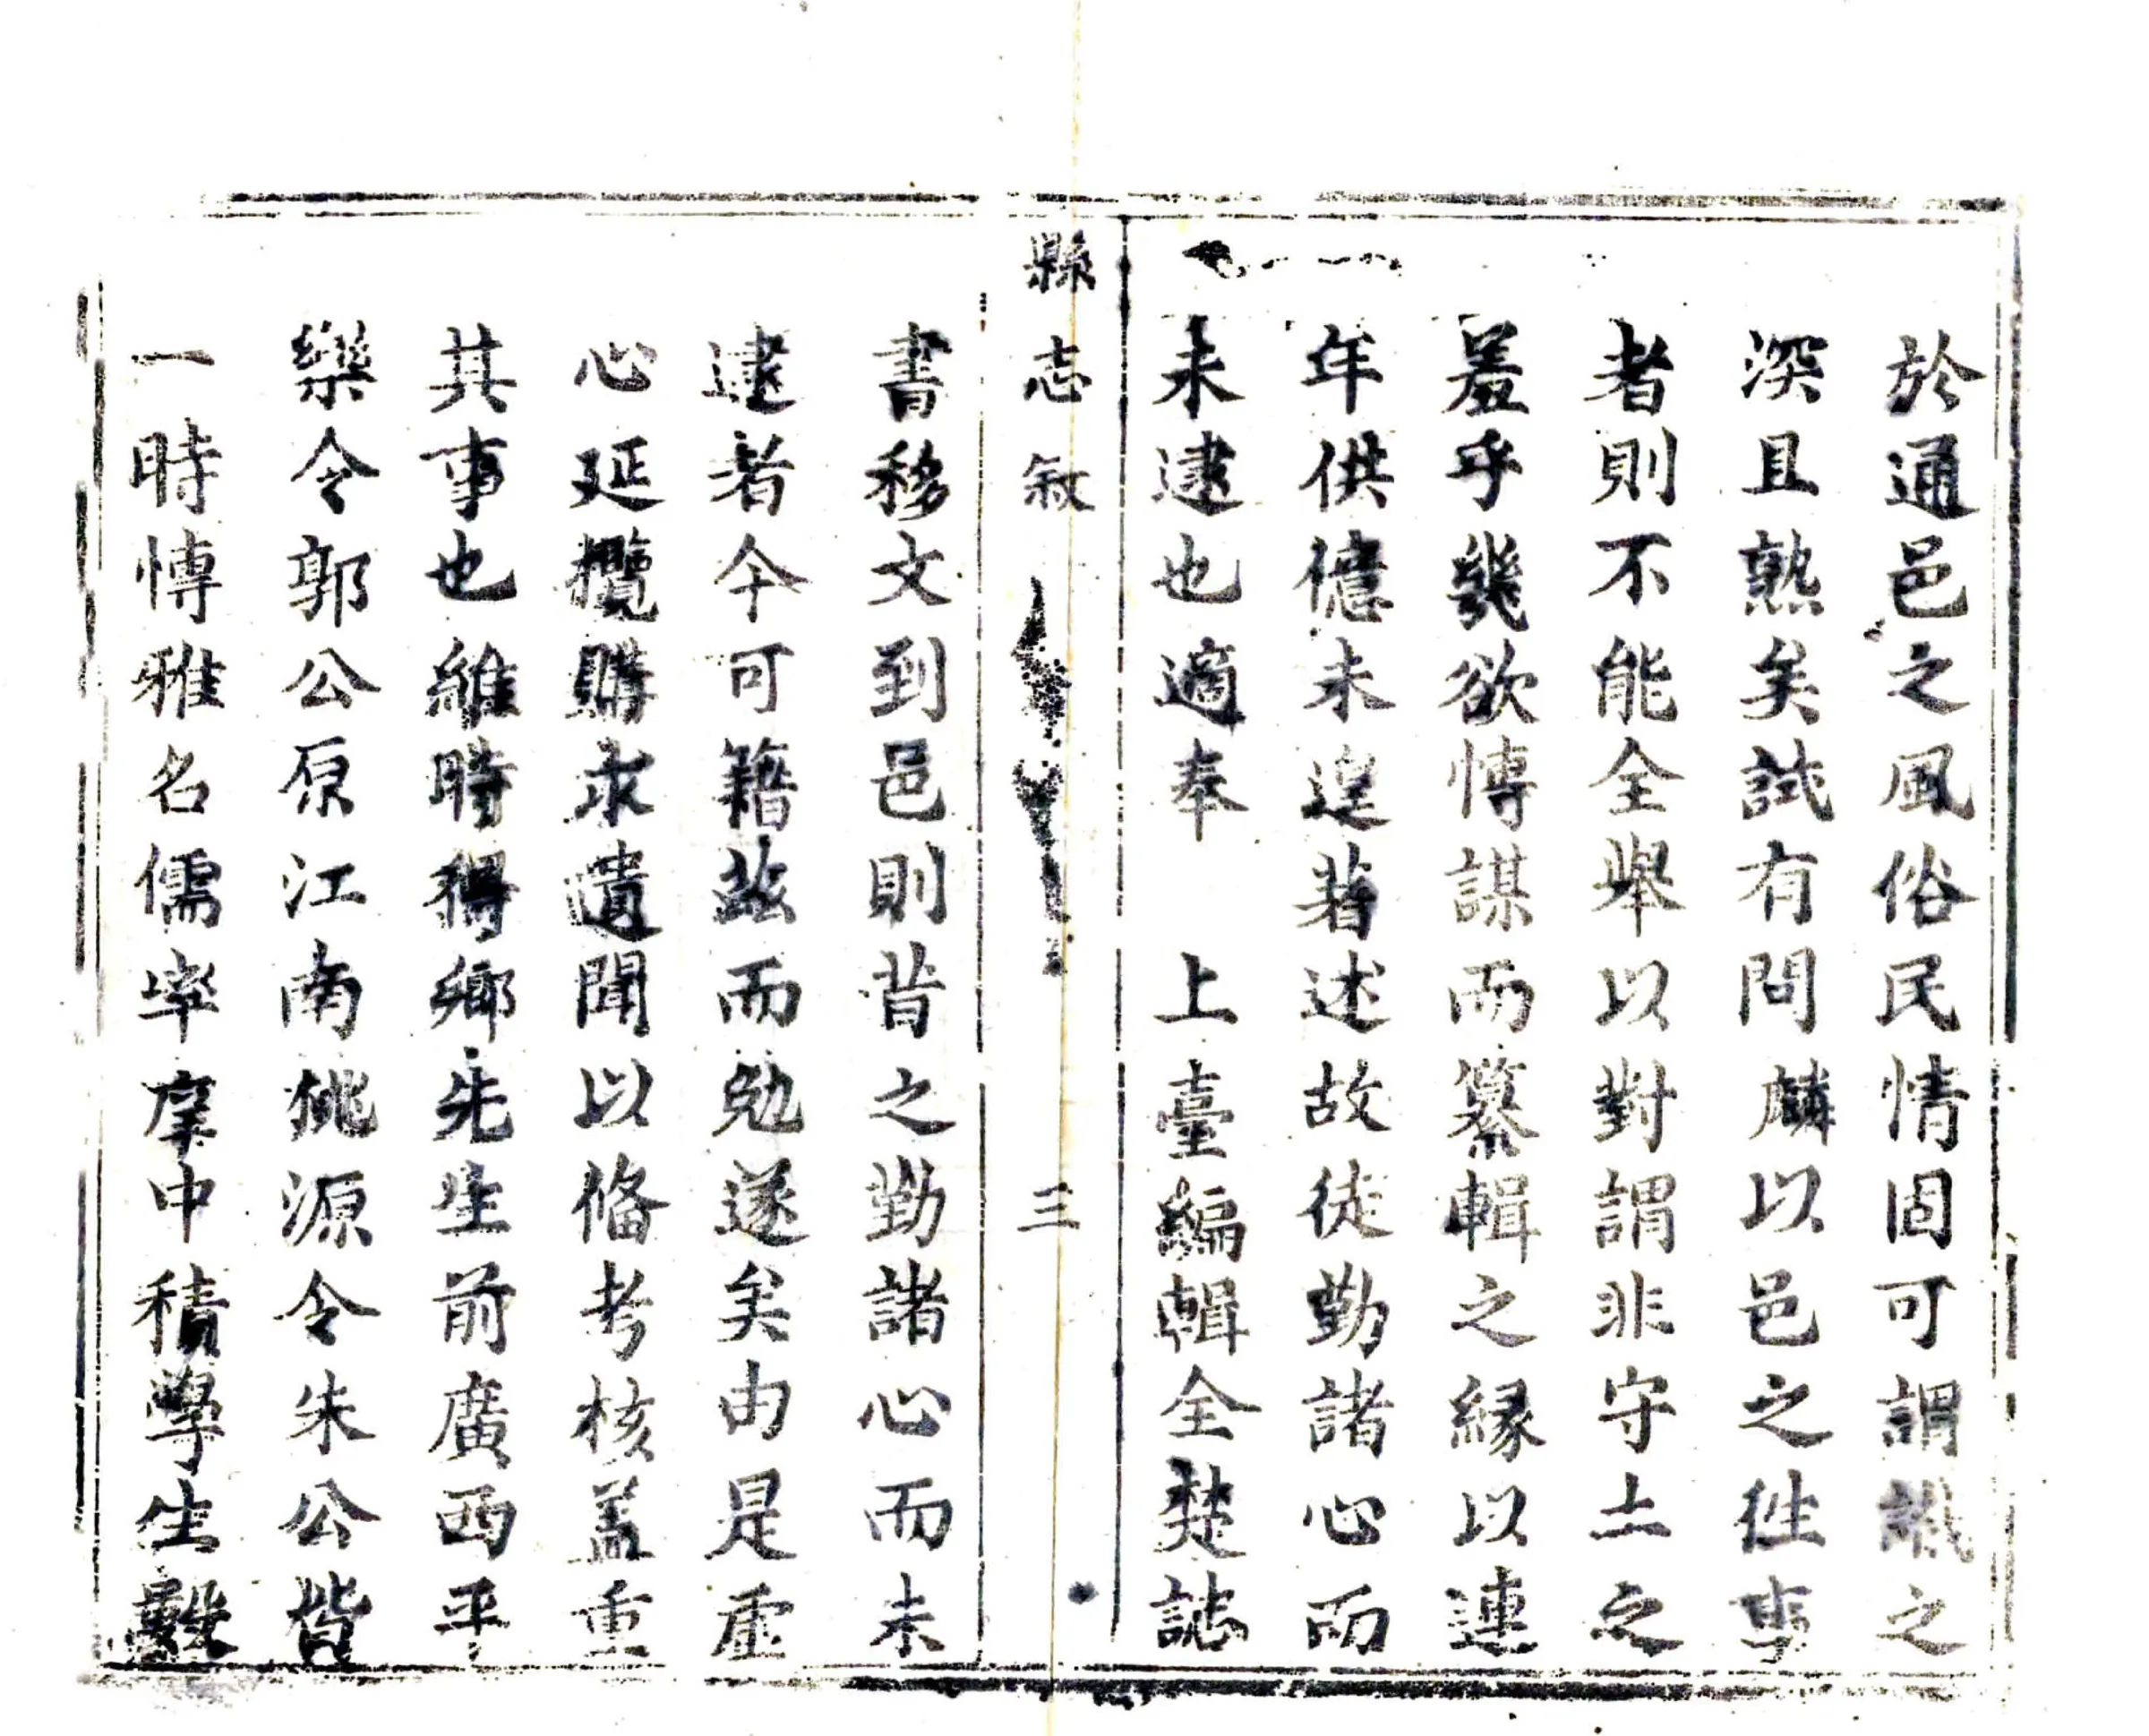 於通邑之風俗民情固可謂識之
深且熟矣試有問麟以邑之徃事
者則不能全舉以對謂非守土之
羞乎幾欲愽謀而纂輯之縁以連
年供億未遑著述故徒勤諸心而
未逮也適奉　上臺編輯全楚誌
縣志敘　三
書移文到邑則昔之勤諸心而未
逮者今可籍茲而勉遂矣由是虛
心延攬購求遺聞以備考核蓋重
其事也維時得鄉先生前廣西平
樂令郭公原江南桃源令朱公皆
一時愽雅名儒率庠中積學生